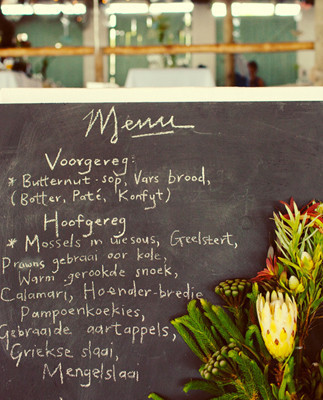 Menu
Voorgereg:
* Butternut-sop, Vars brood,
(Botter, Paté, Konfyt)
Hoofgereg
* Mossels in wesous, Geelstert,
Prawns gebraai oor kole,
Warm-gerookde snoek,
Calamari, Hoender-bredie
Pampoenkoekies,
Gebraaide aartappels,
Griekse slaai,
Mengelslaai